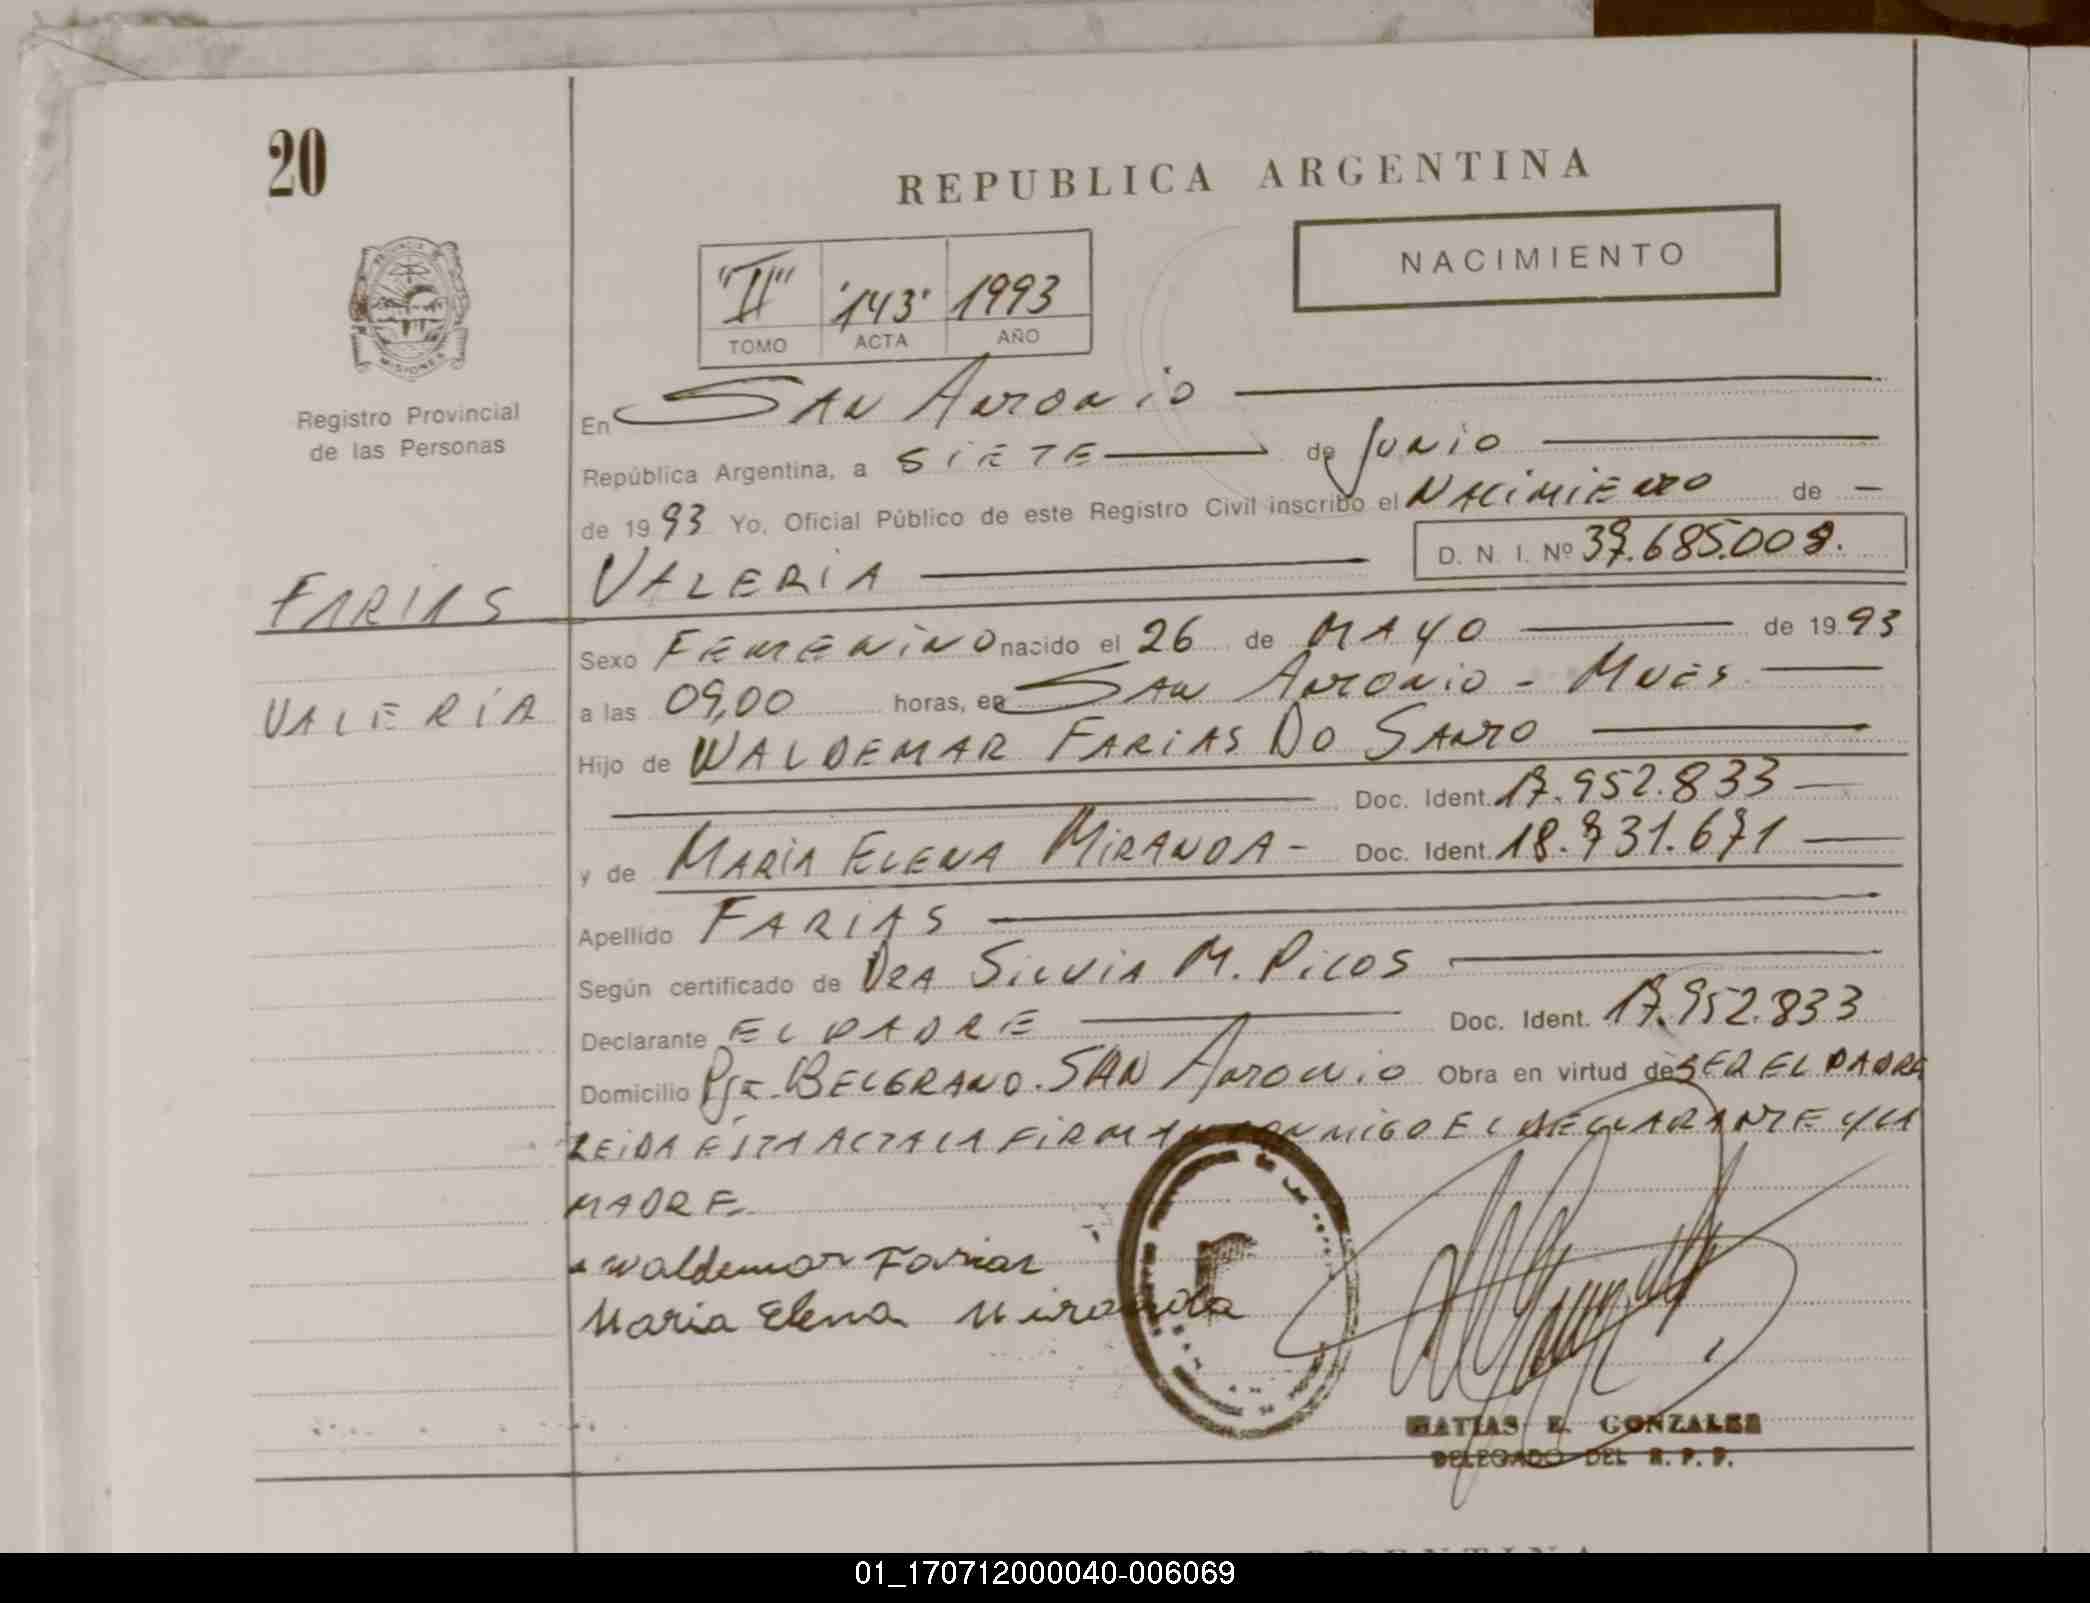 20
REPUBLICA ARGENTINA
NACIMIENTO
"II" "143" 1993
TOMO ACTA AÑO
PROVINCIA DE
MISIONES
Registro Provincial
de las Personas
En SAN ANTONIO
República Argentina, a SIETE de JUNIO
de 1993 Yo, Oficial Público de este Registro Civil inscribo el NACIMIENTO de —
VALERIA D. N. I. Nº 37.685.008.
FARIAS
VALERIA
Sexo FEMENINO nacido el 26 de MAYO de 1993
a las 09,00 horas, en SAN ANTONIO - MNES
Hijo de WALDEMAR FARIAS DO SANTO
Doc. Ident. 17.952.833
y de MARIA ELENA MIRANDA - Doc. Ident. 18.731.671
Apellido FARIAS
Según certificado de DRA SILVIA M. PICOS
Declarante EL PADRE Doc. Ident. 17.952.833
Domicilio Pje. BELGRANO. SAN ANTONIO Obra en virtud de SER EL PADRE
LEIDA ESTA ACTA LA FIRMAN CONMIGO EL DECLARANTE Y LA
MADRE
Waldemar Farias
Maria Elena Miranda
MATIAS E. GONZALES
DELEGADO DEL R. P. P.
01_170712000040-006069